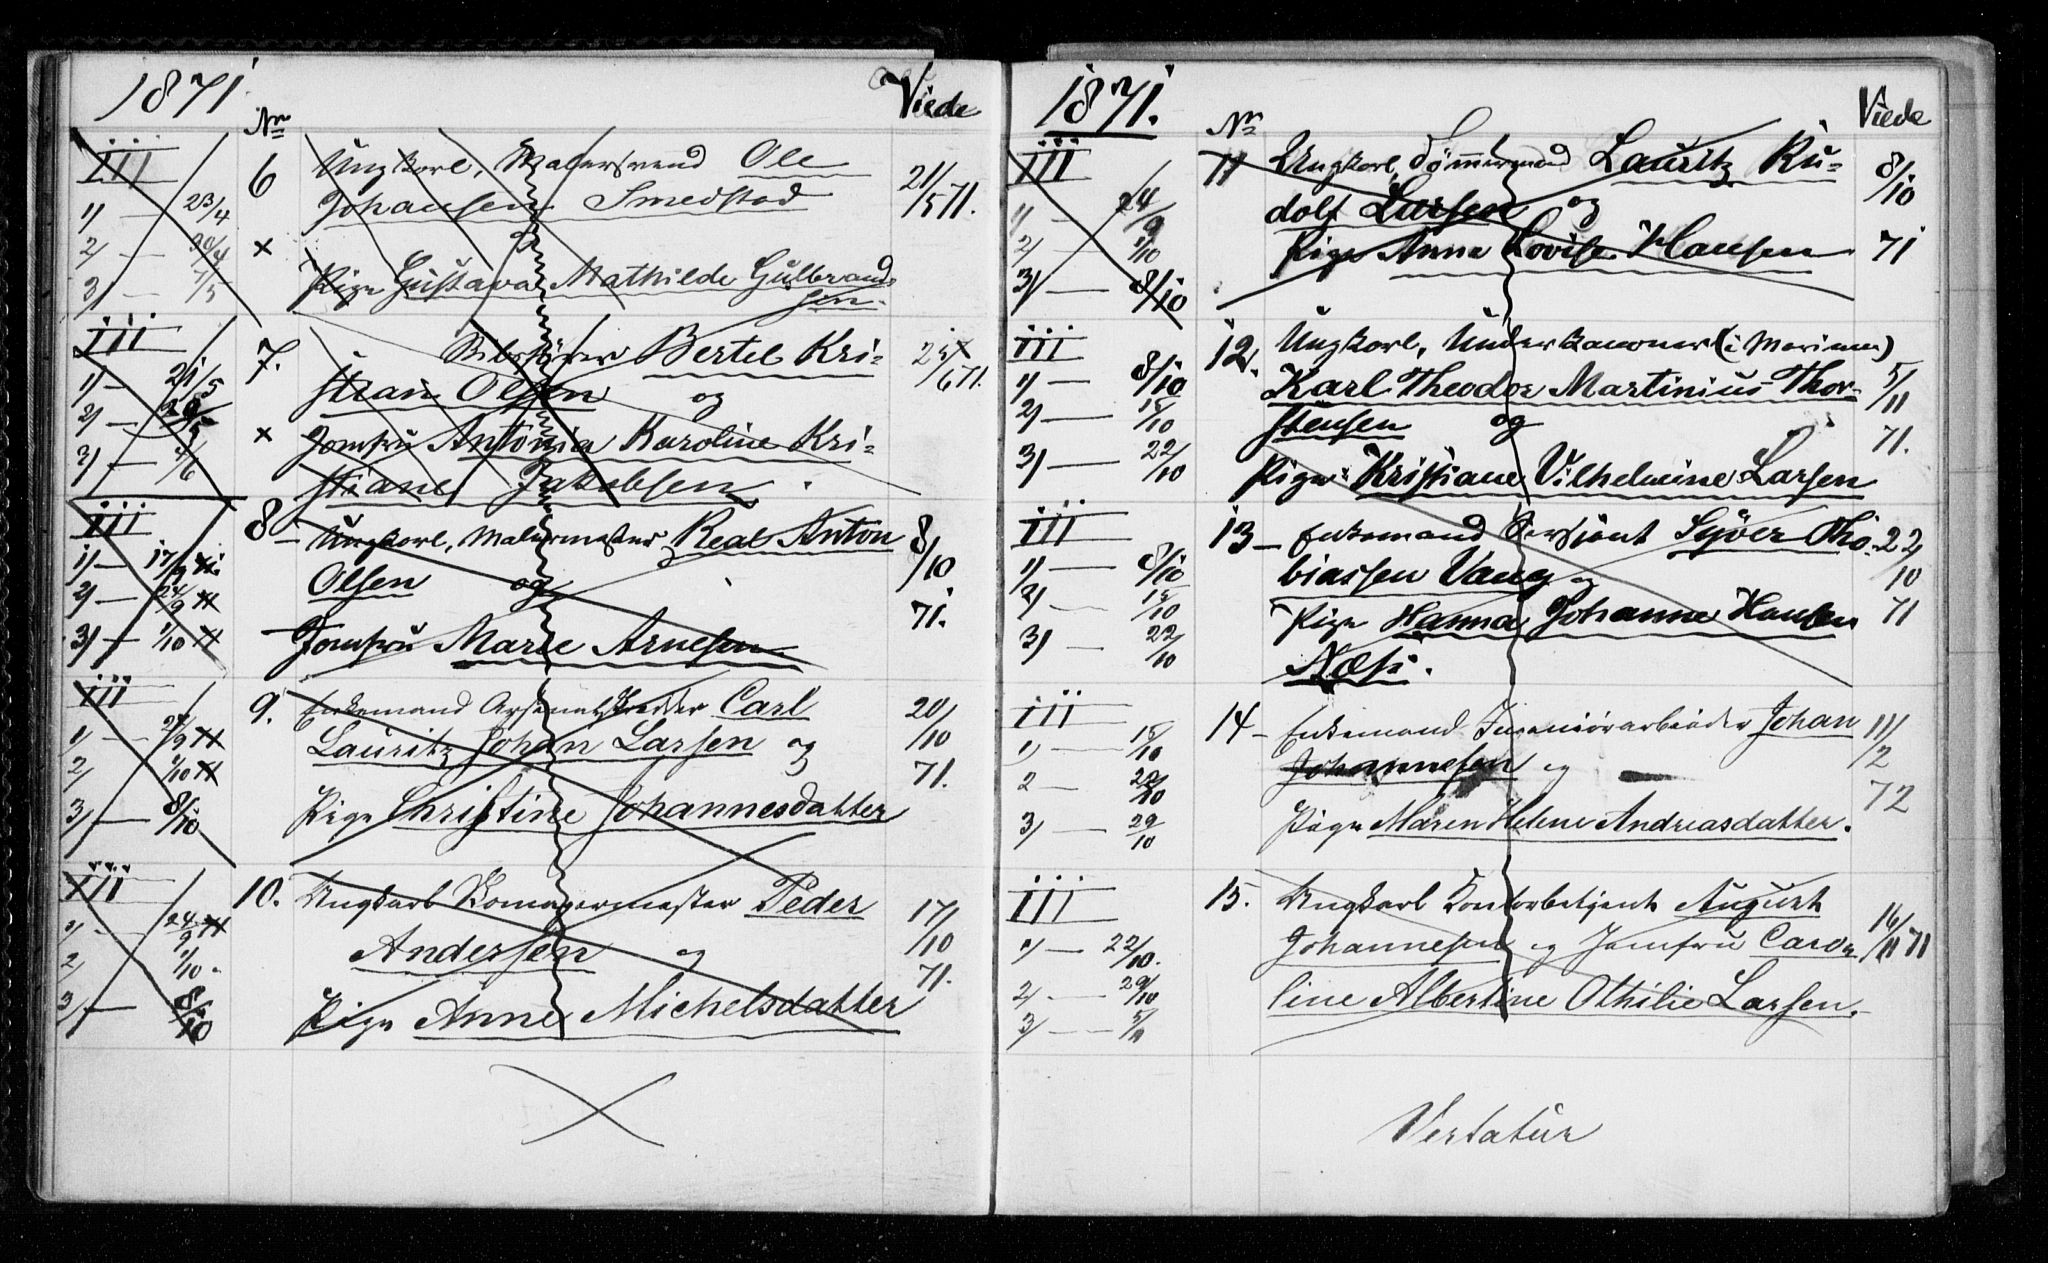 1871.
No
Viede
III
6
Ungkarl, Malersvend Ole
Johansen Smedstad
og
Pige Gustava Mathilde Gulbrand-
sen.
1) — 23/4
2) — 30/4
3) — 7/5
×
21/5 71.
III
7.
Bertel Kri-
stian Olsen og
Jomfru Antonia Karoline Kri-
stiane Jakobsen.
1) — 21/5
2) —
3) — 4/6
×
25/6 71.
III
8 — Ungkarl, Malermester Real Anton
Olsen og
Jomfru Marie Arnesen
1) — 17/9
2) — 24/9
3) — 1/10
8/10
71.
III
9. Enkemand Carl
Lauritz Johan Larsen og
Pige Christine Johannesdatter
1) — 24/9
2) 1/10
3) — 8/10
20/10
71.
III
10. Ungkarl Peder
Andersen og
Pige Anne Michelsdatter
1) — 24/9
2) 1/10.
3) — 8/10
17/10
71.
1871.
No
Viede
III
11 Ungkarl, Tømmermand Lauritz Ru-
dolf Larsen og
Pige Anna Lovise Hansen
1) — 24/9
2) — 1/10
3) — 8/10
8/10
71
III
12. Ungkarl, Underkanoner (i Marinen)
Karl Theodor Martinius Thor-
stensen og
Pige Kristiane Vilhelmine Larsen
1) — 8/10
2) — 15/10
3) — 22/10
5/11
71.
III
13 — Enkemand Sersjant Syver Tho-
biassen Vang og
Pige Hanna Johanne Hansen
Næss.
1) — 8/10
2) — 15/10
3) — 22/10
22/10
71
III
14 — Enkemand Johan
Johannesen og
Pige Maren Helene Andreasdatter.
1) — 15/10
2 — 22/10
3) — 29/10
11/2
72
III
15. Ungkarl Kontorbetjent August
Johannesen og Jomfru Caro-
line Albertine Othilie Larsen.
1) — 22/10.
2) — 29/10
3) — 5/11
16/11 71
Vertatur